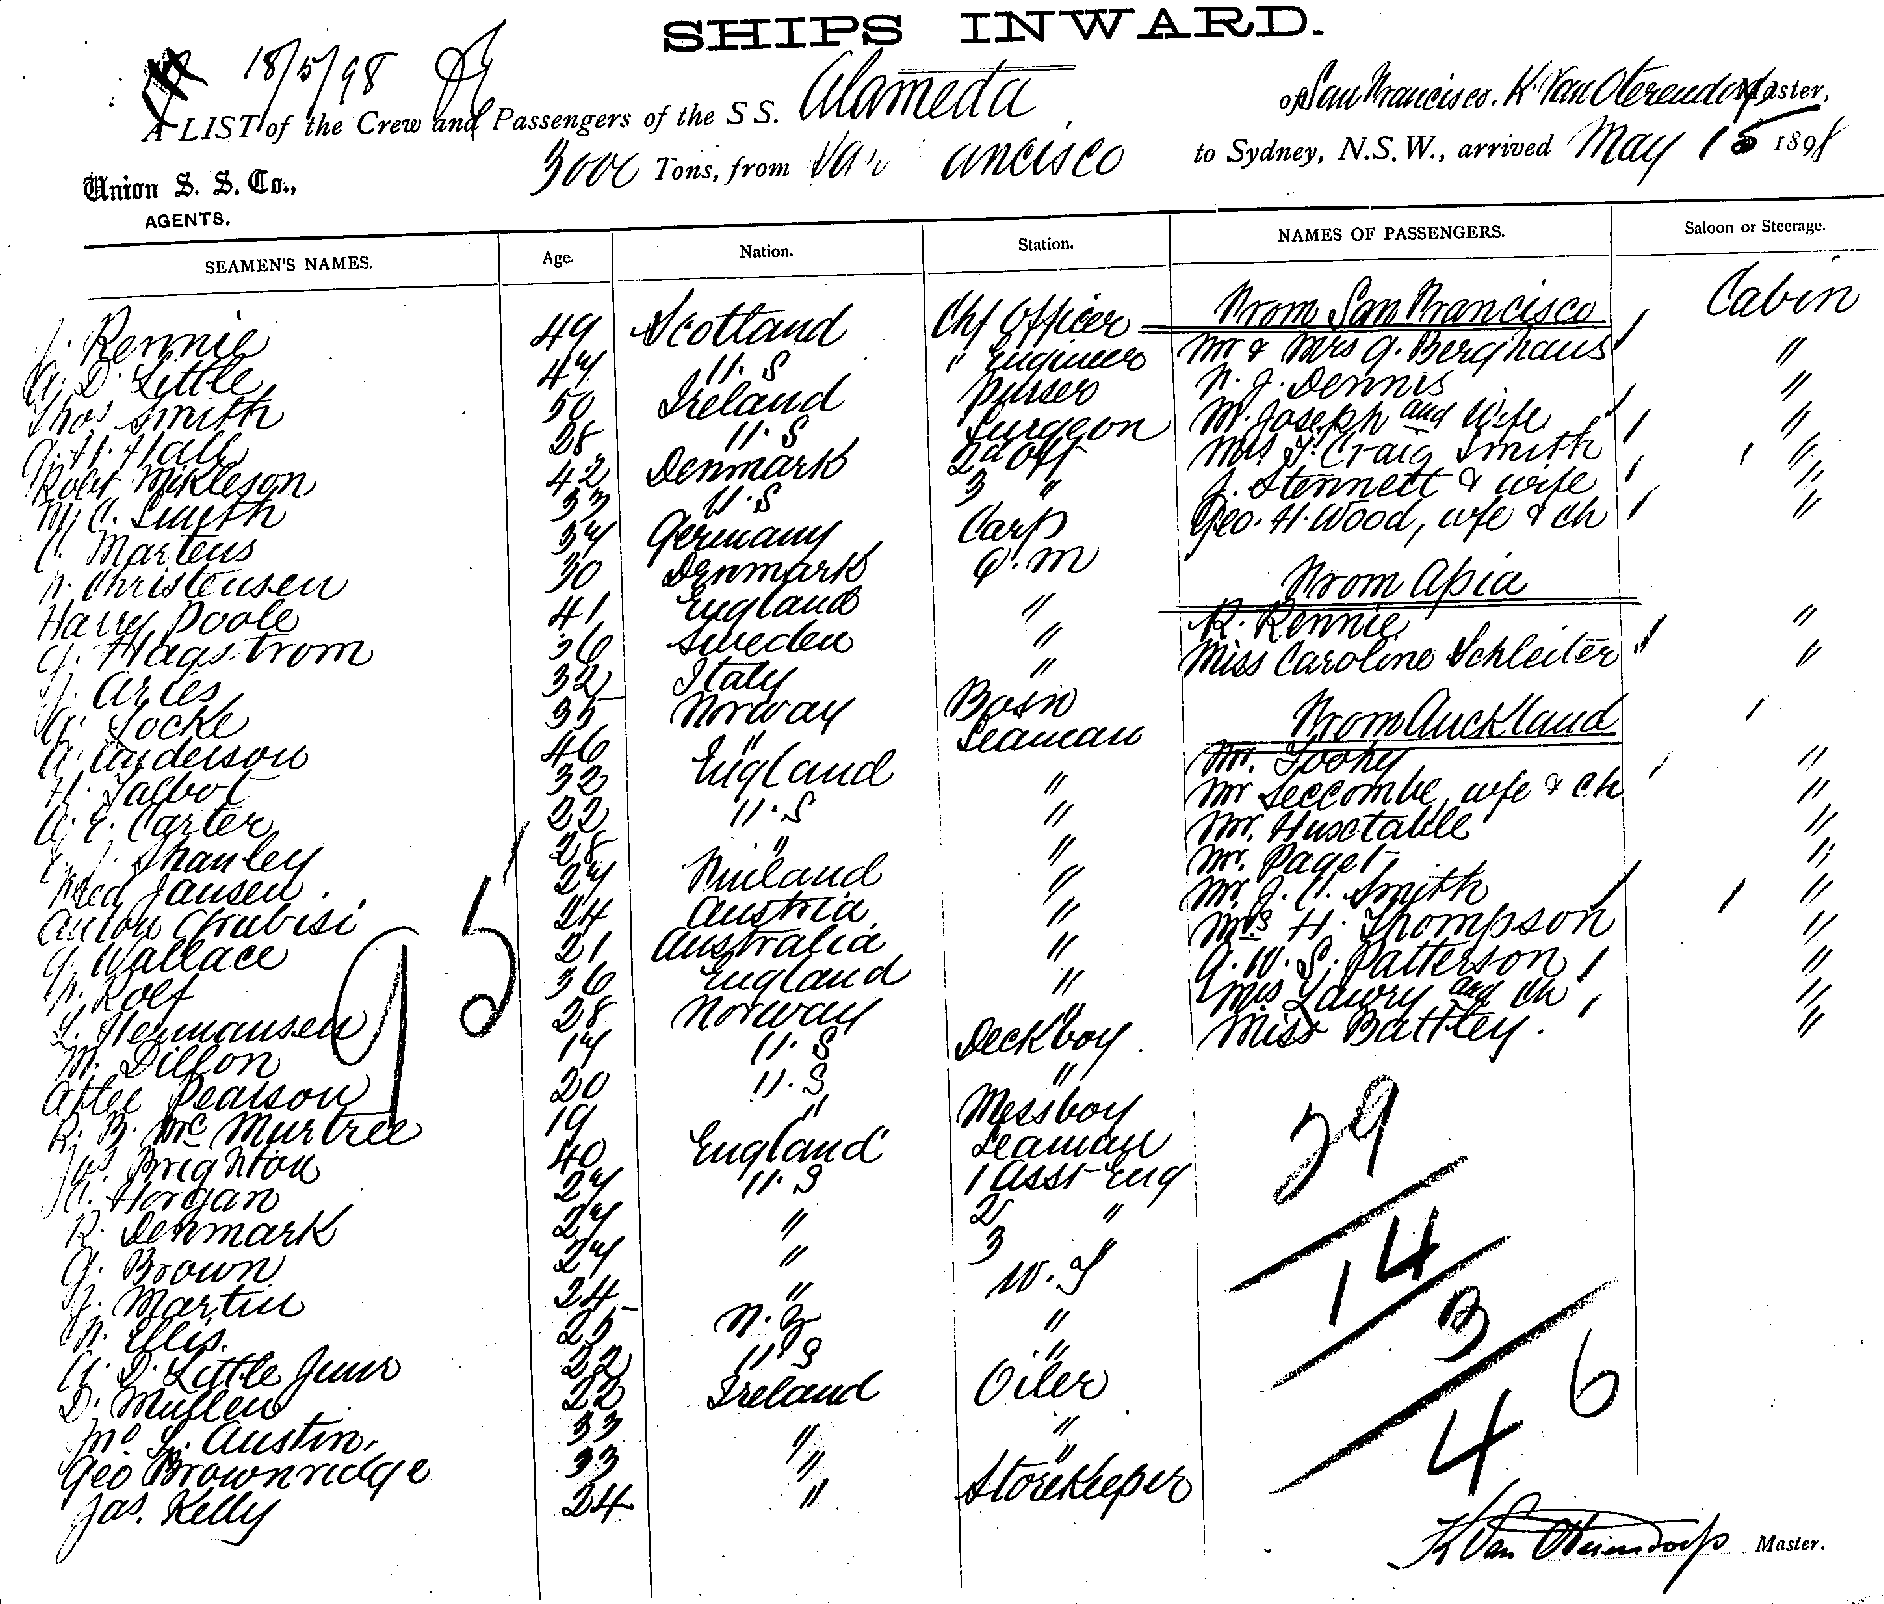 SHIPS INWARD.
18/5/98
A LIST of the Crew and Passengers of the S S. Alameda of San Francisco. K. Van Oterendorp Master,
3000 Tons, from San Francisco to Sydney, N.S.W., arrived May 1898
Union S. S. Co.,
AGENTS.
SEAMEN'S NAMES. Age. Nation. Station. NAMES OF PASSENGERS. Saloon or Steerage.
Rennie 49 Scotland Chf Officer From San Francisco Cabin
D. Little 47 U.S " Engineer Mr & Mrs G. Berghaus "
Thos Smith 50 Ireland Purser F. J. Dennis "
H. Hall 28 U.S Surgeon M. Joseph and Wife "
Robt Mikleson 42 Denmark 2d Off Mrs F. Craig Smith "
M. C. Smith 33 U.S 3 " J. Stennett & wife "
C. Martens 37 Germany Carp Geo. H. Wood, wfe & ch "
N. Christensen 30 Denmark Q.M From Apia
Harry Poole 41 England " R. Rennie "
G. Hagstrom 36 Sweden " Miss Caroline Schleiter "
Aries 32 Italy "
Locke 35 Norway Bosn From Auckland
A. Anderson 46 " Seaman Mr. Toohy "
H. Talbot 32 England " Mr Seccombe, wfe & ch "
A. E. Carter 22 U.S " Mr. Huxtable "
Shanley 28 " " Mr. Paget "
Fred Jansen 27 Finland " Mr. J. C. Smith "
Anton Grubisi 24 Austria " Mrs H. Thompson "
G. Wallace 21 Australia " A. W. S. Patterson "
Rolf 36 England " Mrs Lawry and ch "
L. Hermansen 28 Norway " Miss Battley. "
M. Dillon 17 U.S Deckboy
Atlee Pearson 20 U.S "
R. B. McMurtree 19 " Messboy
Jas Brighton 40 England Seaman
Horgan 27 U.S 1 Asst Eng
R. Denmark 27 " 2 "
G. Brown 27 " 3 "
J. Martin 24 " W.T
Ellis. 25 N.Z "
D. Little Junr 22 U S "
D. Mullen 22 Ireland Oiler
Mc L. Austin. 33 " "
Geo Brownridge 33 " "
Jas. Kelly 24 " Storekeeper
95
29
14
3
4 6
K Van Oterendorp Master.